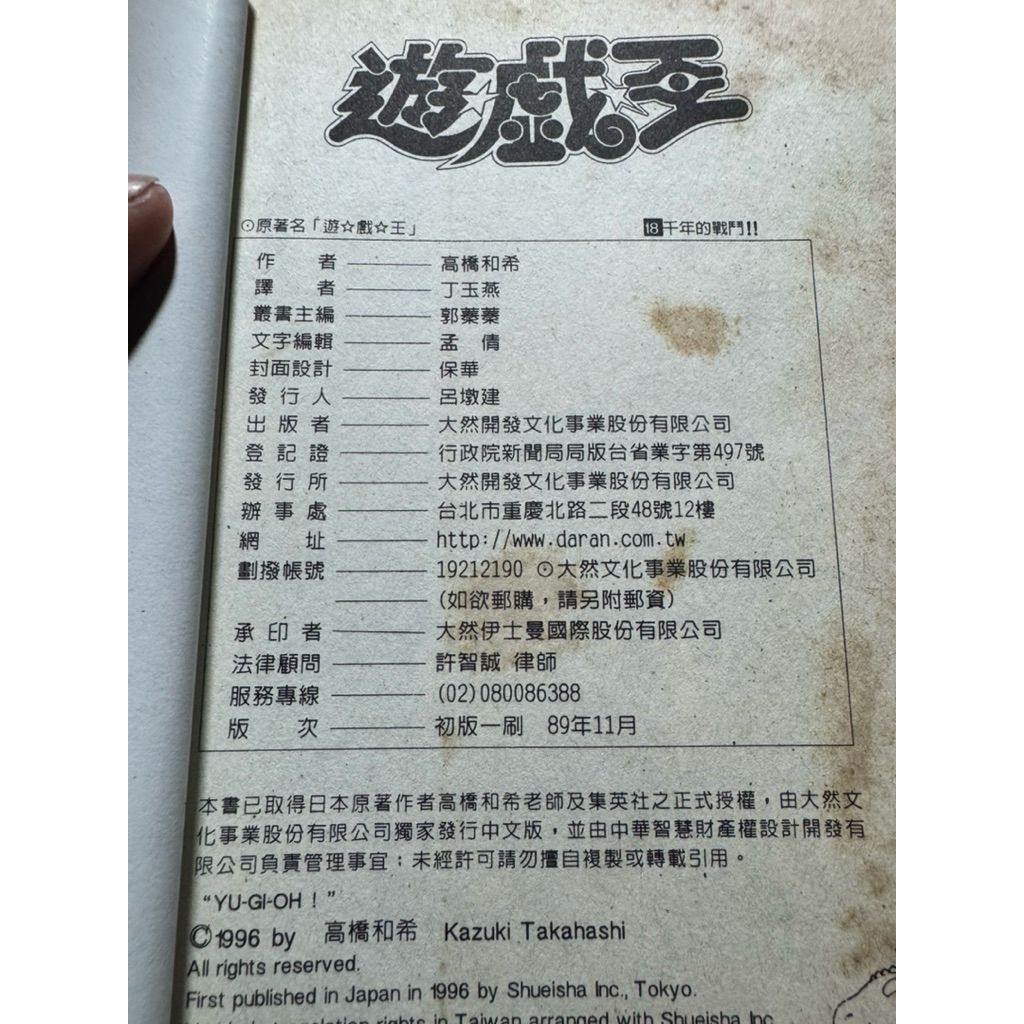 遊戲王
⊙原著名「遊☆戲☆王」 18千年的戰鬥!!
作 者 高橋和希
譯 者 丁玉燕
叢書主編 郭蓁蓁
文字編輯 孟 倩
封面設計 保華
發 行 人 呂墩建
出 版 者 大然開發文化事業股份有限公司
登 記 證 行政院新聞局局版台省業字第497號
發 行 所 大然開發文化事業股份有限公司
辦 事 處 台北市重慶北路二段48號12樓
網 址 http://www.daran.com.tw
劃撥帳號 19212190 ⊙大然文化事業股份有限公司
(如欲郵購，請另附郵資)
承 印 者 大然伊士曼國際股份有限公司
法律顧問 許智誠 律師
服務專線 (02)080086388
版 次 初版一刷 89年11月
本書已取得日本原著作者高橋和希老師及集英社之正式授權，由大然文
化事業股份有限公司獨家發行中文版，並由中華智慧財產權設計開發有
限公司負責管理事宜；未經許可請勿擅自複製或轉載引用。
“YU-GI-OH！”
©1996 by 高橋和希 Kazuki Takahashi
All rights reserved.
First published in Japan in 1996 by Shueisha Inc., Tokyo.
translation rights in Taiwan arranged with Shueisha Inc.